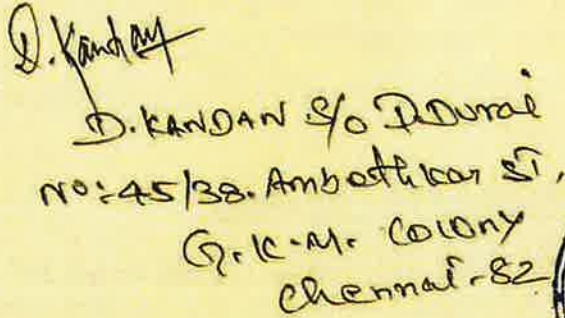 D. Kandan
D. KANDAN S/o P. Durai
No: 45/38. Ambethkar ST,
G.K.M. COLONY
Chennai-82